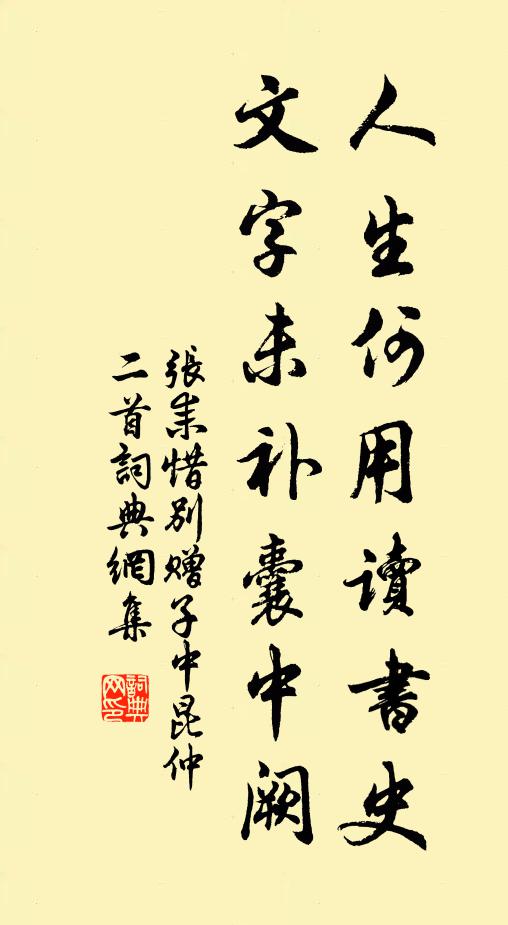 人生何用讀書史
文字未补囊中阙
張耒惜别赠子中昆仲
二首詞典網集
詞典网印